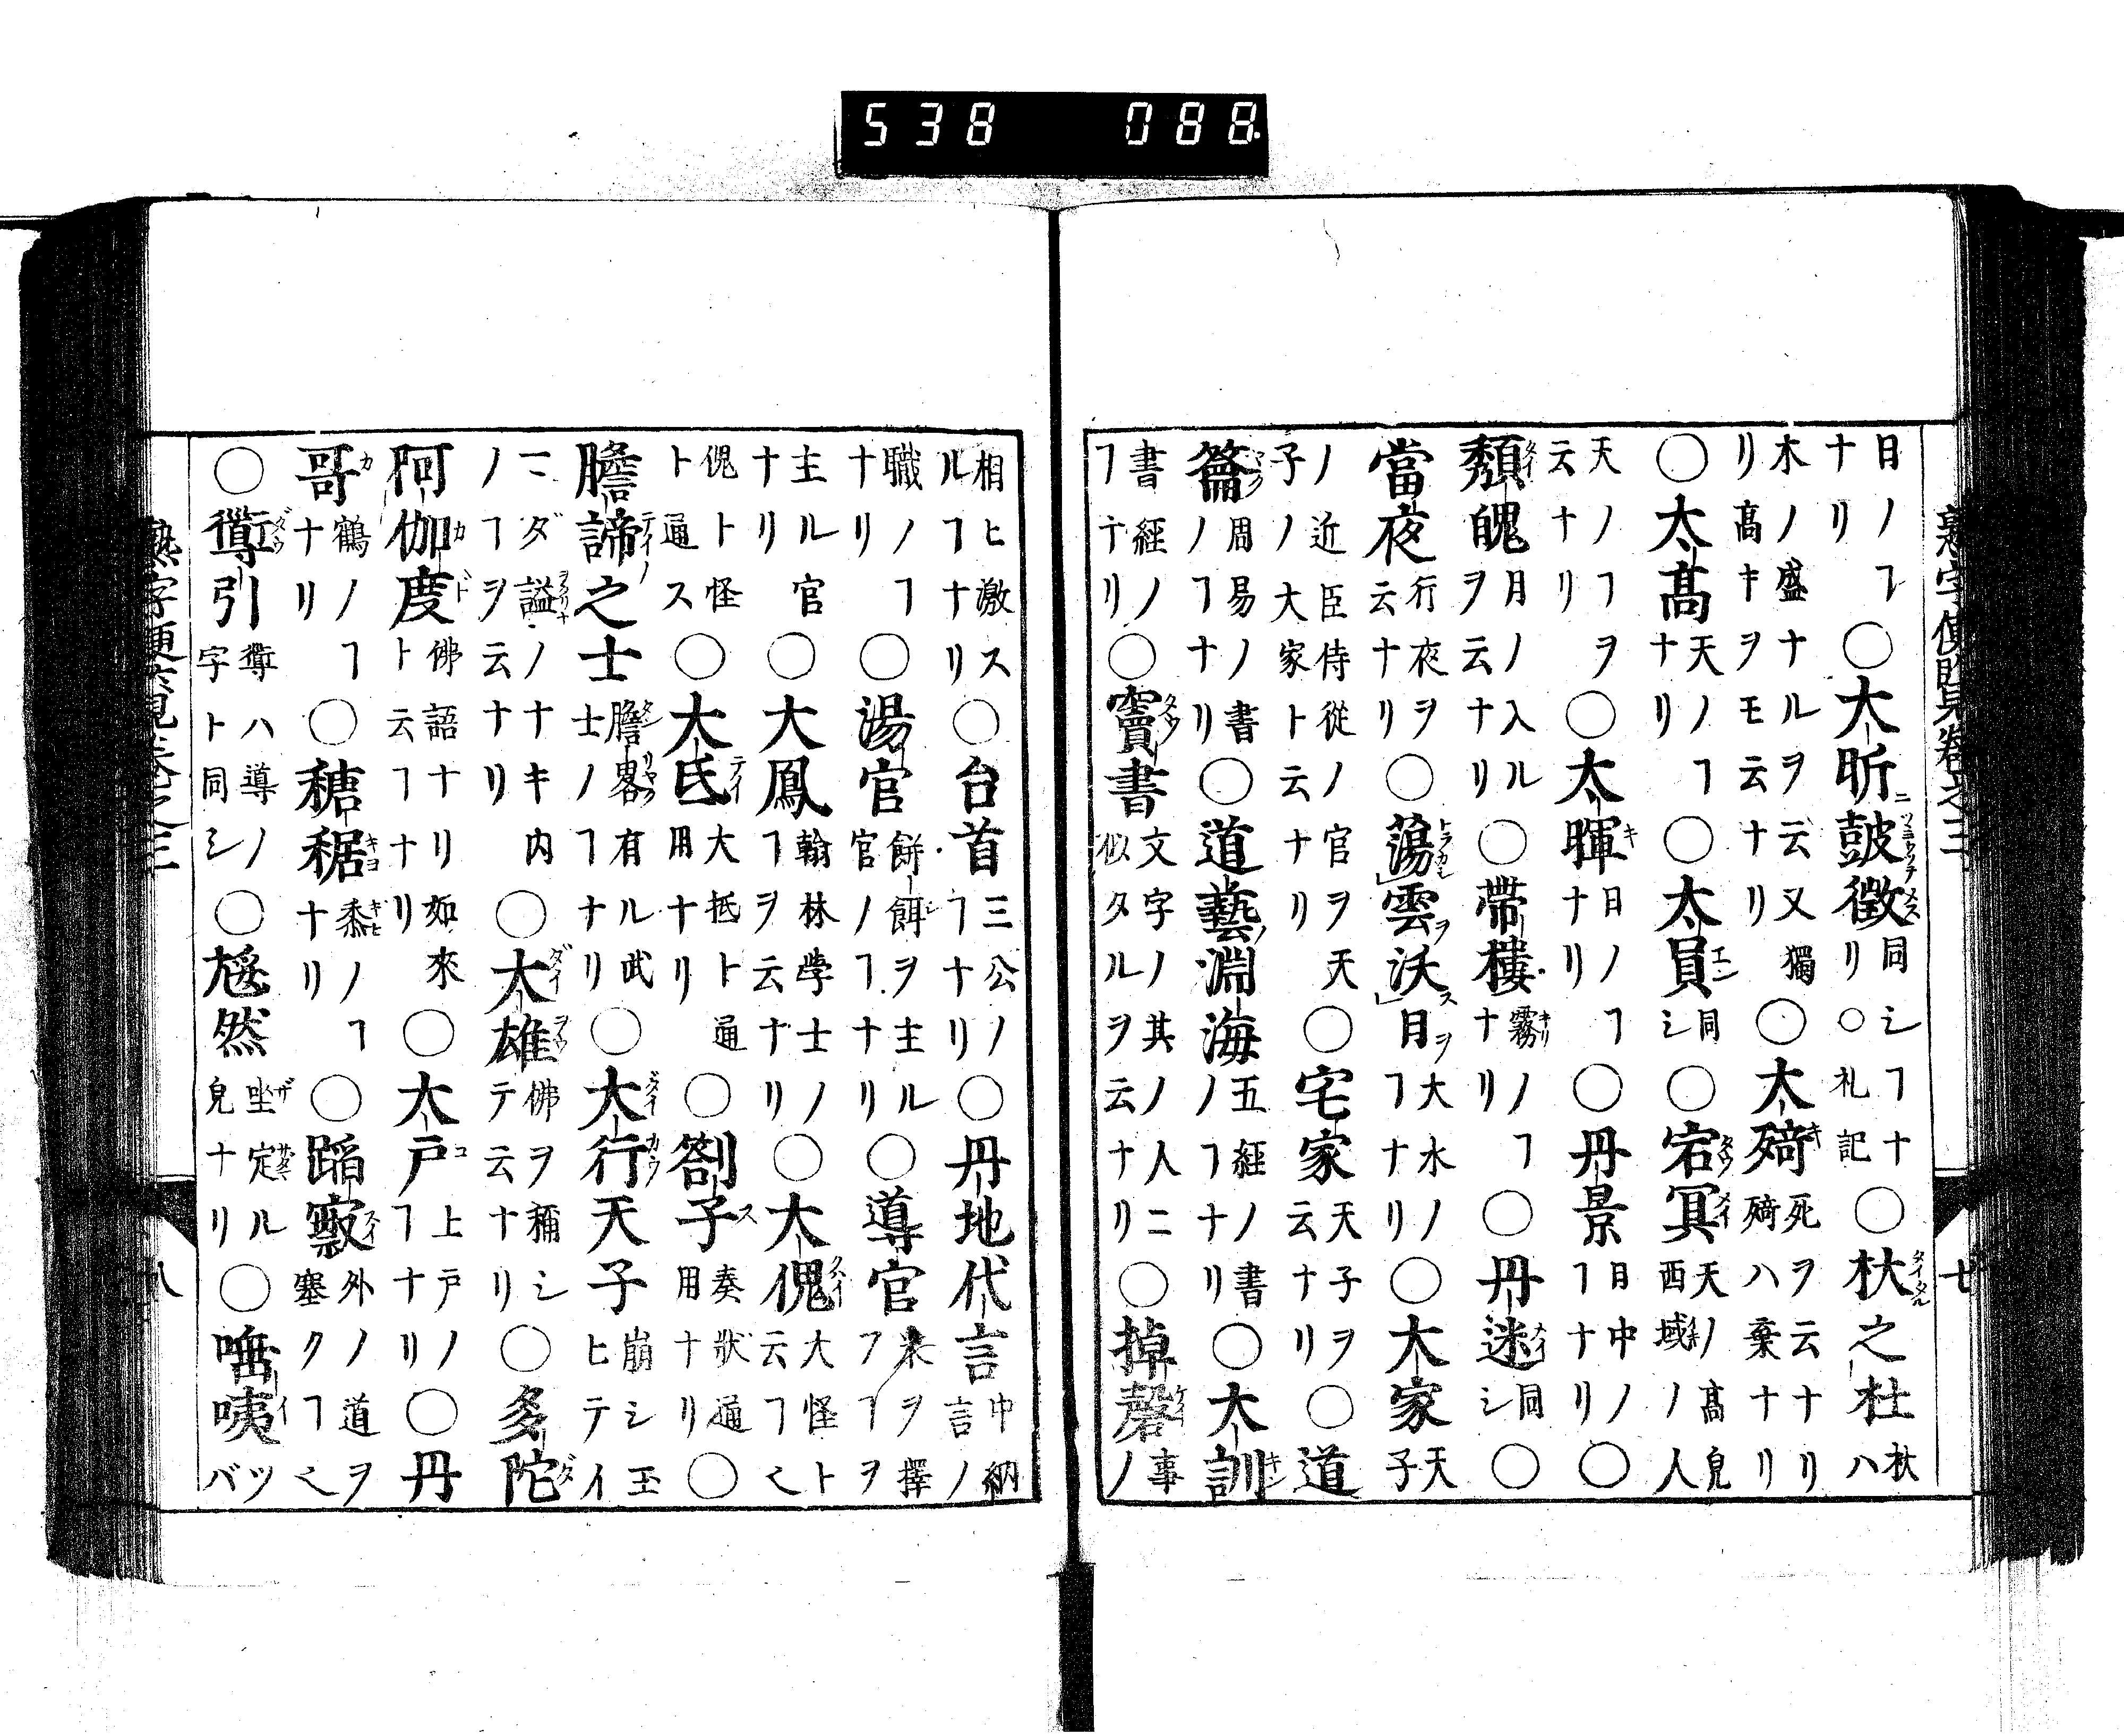 538 088
熟字便覧卷之三
日ノヿナリ○大昕ニ鼓徴同シヿナリ○礼記○杕之杜杕ハ
木ノ盛ナルヲ云又獨リ高キヲモ云ナリ○太㱦死ヲ云ナリ㱦ハ棄ナリ
○太高天ノヿナリ○太員同シ○宕冥天ノ高皃西域ノ人
天ノヿヲ云ナリ○太暉日ノヿナリ○丹景日中ノヿナリ○
頽魄月ノ入ルヲ云ナリ○帶樓霧ノヿナリ○丹迷同シ○
當夜行夜ヲ云ナリ○蕩雲ヲ沃ス月ヲ大水ノヿナリ○大家天子
ノ近臣侍從ノ官ヲ天子ノ大家ト云ナリ○宅家天子ヲ云ナリ○道
籥周易ノ書ノヿナリ○道藝ノ淵海五經ノ書ノヿナリ○太訓
書經ノヿナリ○竇書文字ノ其ノ人ニ似タルヲ云ナリ○掉磬事ノ
相ヒ激スルヿナリ○台首三公ノヿナリ○丹地代言中納言ノ
職ノヿナリ○湯官餅餌ヲ主ル官ノヿナリ○導官米ヲ擇フヿヲ
主ル官ナリ○大鳳翰林學士ノヿヲ云ナリ○大傀大怪ト云フヿ也
傀ト怪ト通ス○大氐大抵ト通用ナリ○劄子奏狀通用ナリ○
膽諦之士膽畧有ル武士ノヿナリ○大行天子崩シ玉ヒテイ
マダ謚ノナキ内ノヿヲ云ナリ○大雄佛ヲ稱シテ云ナリ○多陀
阿伽度佛語ナリ如來ト云ヿナリ○太戸上戸ノヿナリ○丹
哥鶴ノヿナリ○穂䅕黍ノヿナリ○蹈竅外ノ道ヲ塞クヿ也
○𨗉引𨗉ハ導ノ字ト同シ○㞂然坐定ル皃ナリ○㗜咦ツバ
熟字便覧卷之三 八